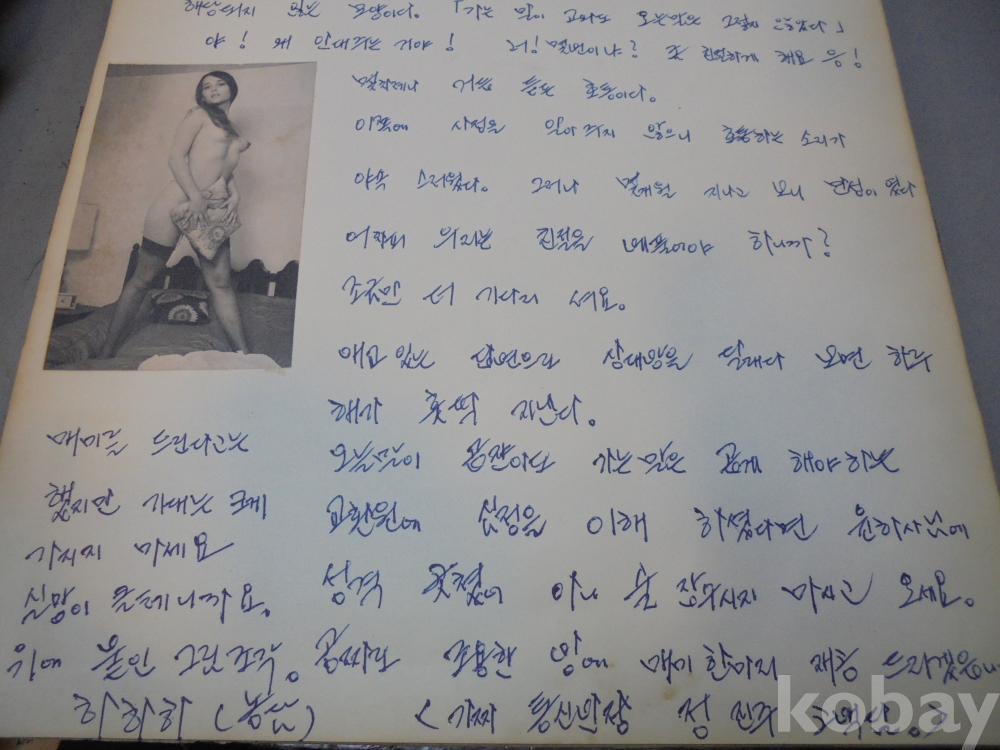 해당되지 않는 모양이다. 「가는 말이 고와도 오는말은 그렇지 않았다」
야! 왜 안대주는 거야! 러! 몇번이냐? 좀 친절하게 해요 응!
몇차례나 거듭 듣는 호통이다.
이쪽에 사정을 알아 주지 않으니 호통하는 소리가
야속 스러웠다. 그러나 몇개월 지나고 보니 만성이 됬다
어차피 우리는 친절을 베풀어야 하니까?
조금만 더 기다리 셔요.
애교 있는 답변으로 상대방을 달래다 보면 하루
해가 훌쩍 지난다.
오는말이 공짠아도 가는 말은 곱게 해야하는
교환원에 심정을 이해 하셨다면 윤하사님에
성격 못쳤어 아니 물 잠두시지 마시고 오세요.
매미를 드린다고는
했지만 기대는 크게
가지지 마세요
실망이 클테니까요.
위에 붙인 그림조각. 공짜로 조용한 방에 매미 한마리 제공 드리겠음니
하하하 (농담) < 가짜 통신반장 정 진주
kobay